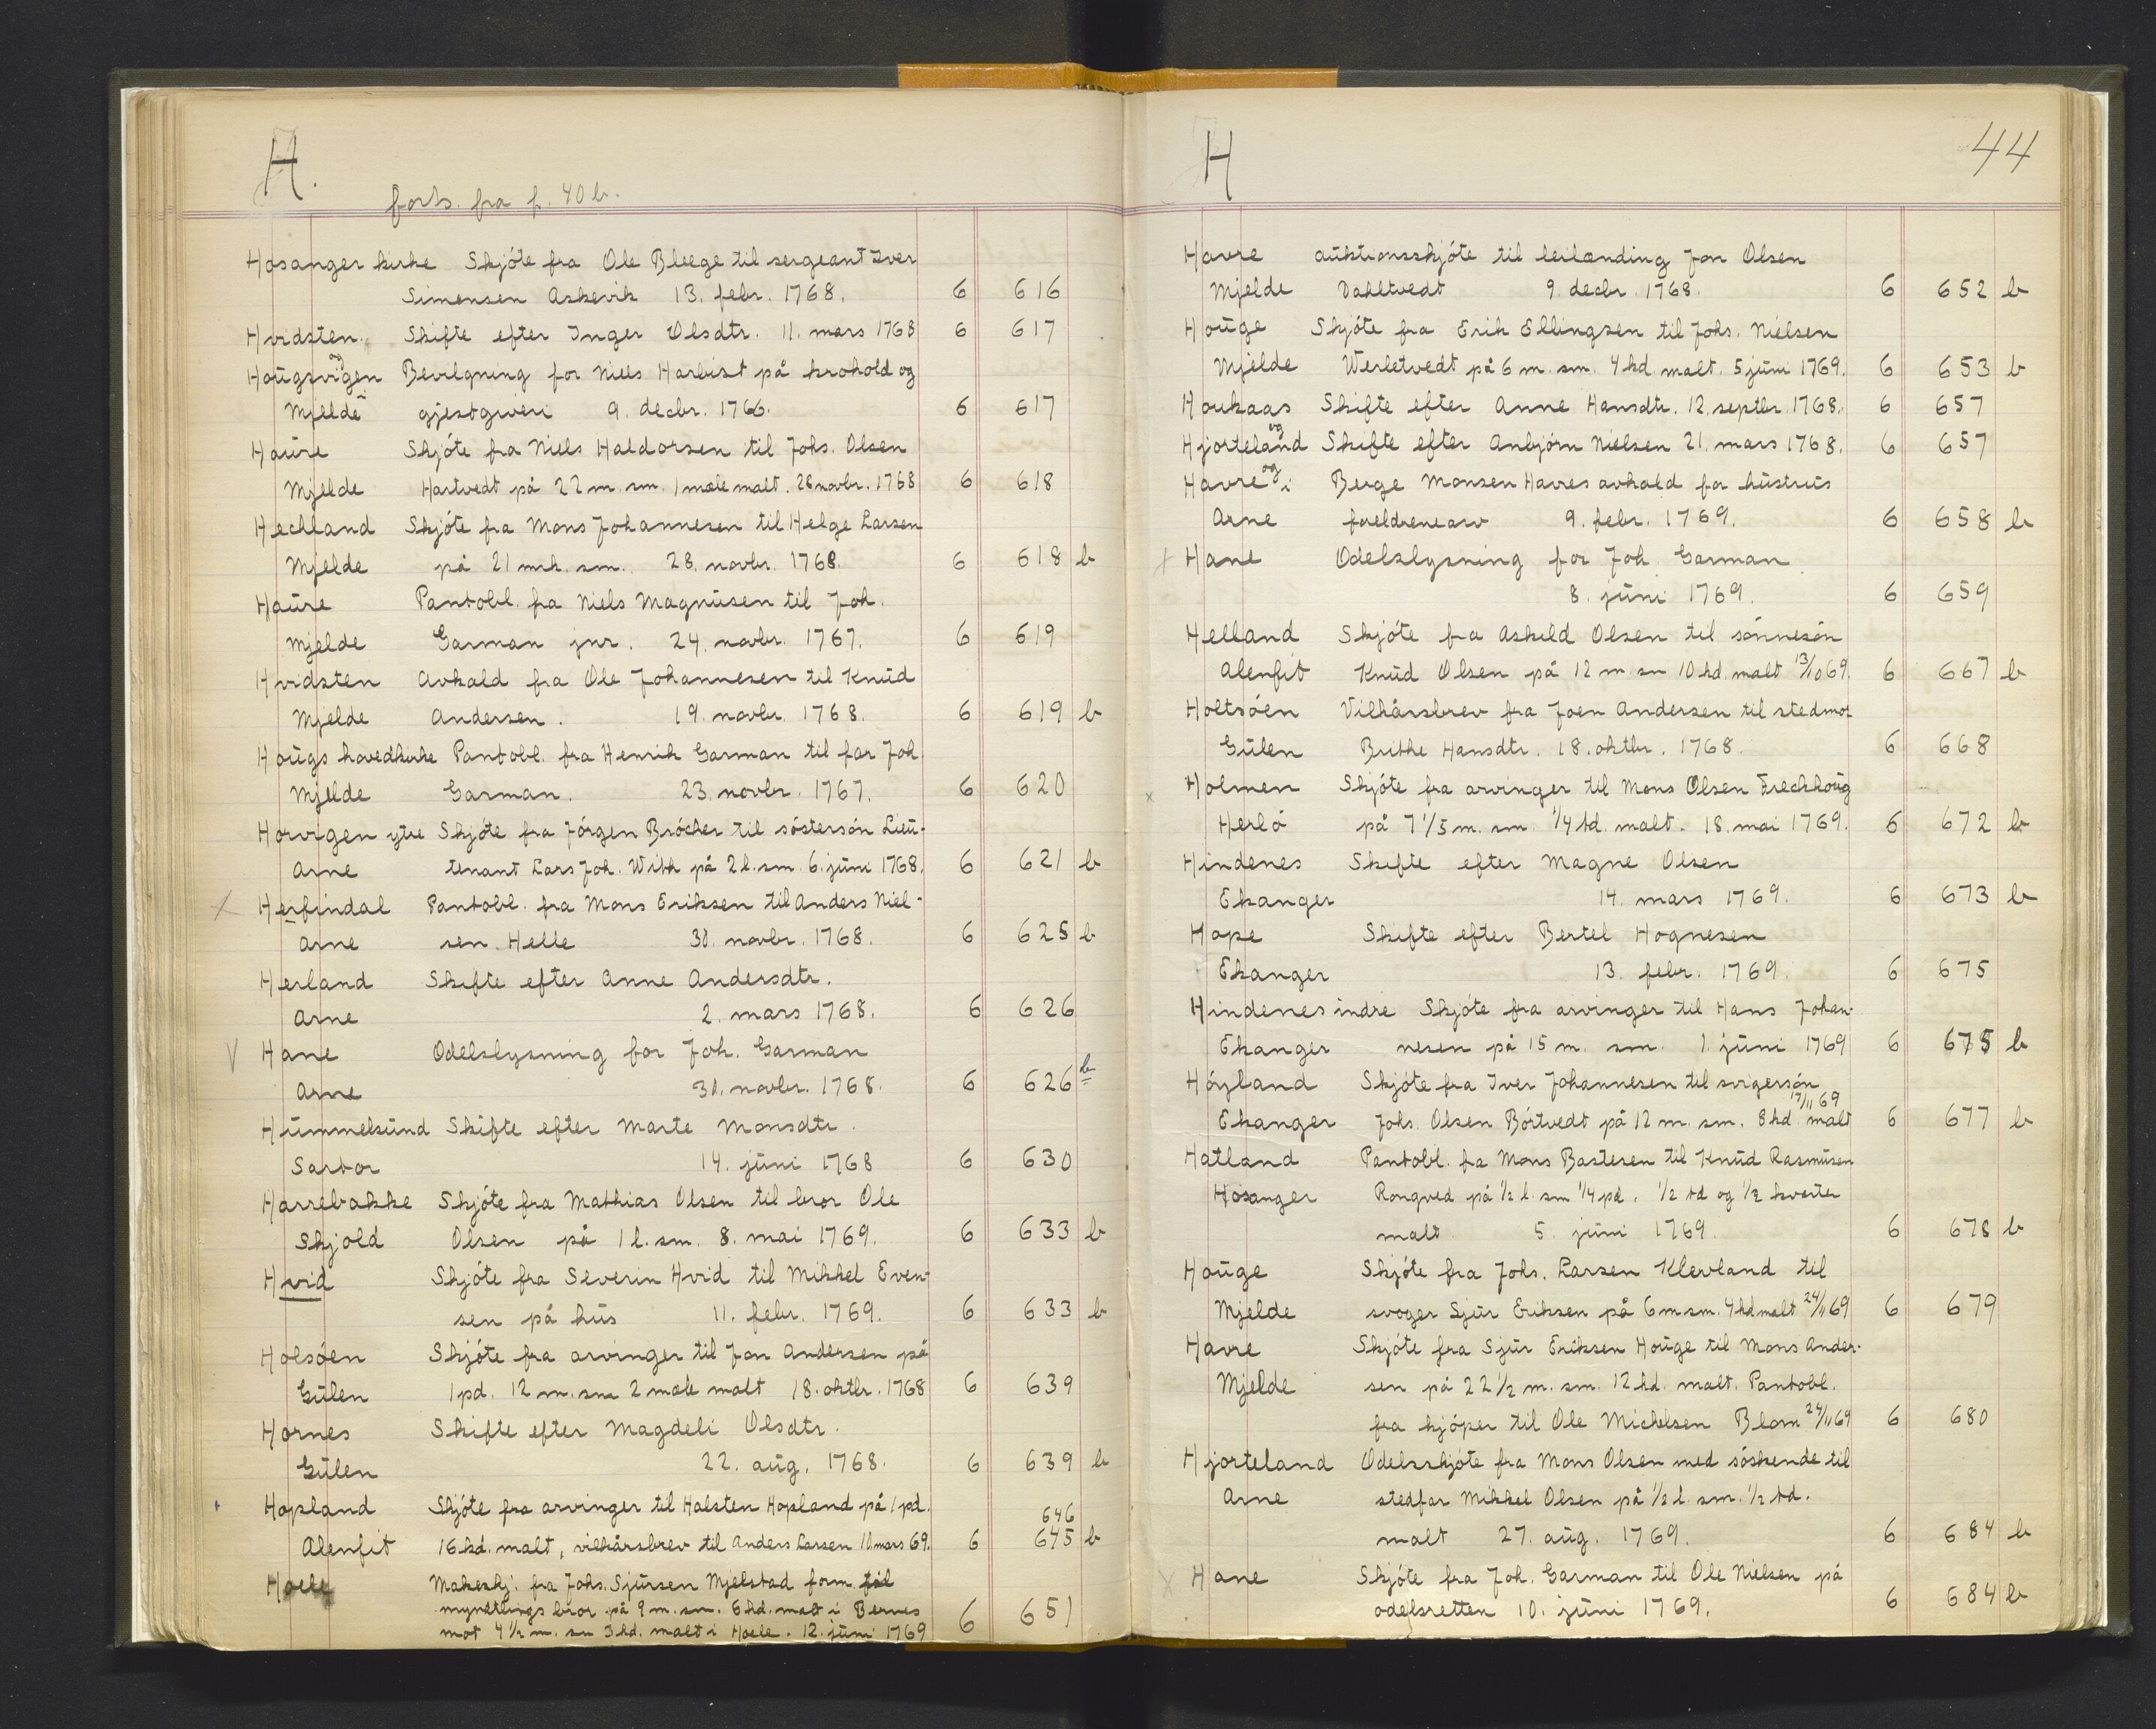 H.
forts. fra f. 40 b.
Hosanger kirke Skjóte fra Ole Bleege til sergeant Iver
Simonsen Askevik 13. febr. 1768. 6 616
Hvidsten Skifte efter Inger Olsdtr. 11. mars 1768 6 617
og
Hougsvigen Bevilgning for Niels Harbist på krohold og
Mjelde gjestgiveri 9. decbr. 1766. 6 617
Haure Skjóte fra Niels Haldorsen til Johs. Olsen
Mjelde Hartvedt på 22 m. sm. 1 mæle malt. 28 novbr. 1768 6 618
Hechland Skjóte fra Mons Johannesen til Helge Larsen
Mjelde på 21 mrk. sm. 28. novbr. 1768. 6 618 b
Haure Pantobl. fra Niels Magnusen til Joh.
Mjelde Garman jnr. 24. novbr. 1767. 6 619
Hvidsten Avkald fra Ole Johannesen til Knud
Mjelde Andersen. 19. novbr. 1768. 6 619 b
Hougs hovedkirke Pantobl. fra Henrik Garman til far Joh.
Mjelde Garman. 23. novbr. 1767. 6 620
Horvigen ytre Skjóte fra Jórgen Brócher til sóstersón Lieu-
Arne tenant Lars Joh. With på 2 l. sm. 6. juni 1768. 6 621 b
Herfindal Pantobl. fra Mons Eriksen til Anders Niel-
Arne sen Helle 30. novbr. 1768. 6 625 b
Herland Skifte efter Anne Andersdtr.
Arne 2. mars 1768. 6 626
Hane Odelslysning for Joh. Garman
Arne 30. novbr. 1768. 6 626 b
Hummelsund Skifte efter Marte Monsdtr.
Sartor 14. juni 1768 6 630
Harrebakke Skjóte fra Mathias Olsen til bror Ole
Skjold Olsen på 1 l. sm. 8. mai 1769. 6 633 b
Hvid Skjóte fra Severin Hvid til Mikkel Even-
sen på hus 11. febr. 1769. 6 633 b
Holsóen Skjóte fra arvinger til Jon Andersen på
Gulen 1 pd. 12 m. sm 2 mæle malt 18. oktbr. 1768 6 639
Hornes Skifte efter Magdeli Olsdtr.
Gulen 22. aug. 1768. 6 639 b
Hopland Skjóte fra arvinger til Halsten Hopland på 1 pd.
646
Alenfit 16 kd. malt, vilkårsbrev til Anders Larsen 10 mars 69. 6 645 b
Hoele Makeskj. fra Johs. Sjursen Mjelstad form. til
myndtlings bror på 9 m. sm. 6 kd. malt i Bernes
mot 4 1/2 m. sm 3 kd. malt i Hoele. 12. juni 1769 6 651
H 44
Havre auktionsskjóte til leilænding Jon Olsen
Mjelde Vahltvedt 9. decbr. 1768. 6 652 b
Houge Skjóte fra Erik Ellingsen til Johs. Nielsen
Mjelde Werletvedt på 6 m. sm. 4 kd. malt. 5 juni 1769. 6 653 b
Houkaas Skifte efter Anne Hansdtr. 12. septbr. 1768. 6 657
og
Hjorteland Skifte efter Anbjórn Nielsen 21. mars 1768. 6 657
og
Havre i Berge Monsen Havres avkald for hustrus
Arne foreldrenearv 9. febr. 1769. 6 658 b
Hane Odelslysning for Joh Garman
8. juni 1769. 6 659
Helland Skjóte fra Askild Olsen til sónnesón
Alenfit Knud Olsen på 12 m sm 10 kd. malt 13/10 69. 6 667 b
Holtsóen Vilkårsbrev fra Joen Andersen til stedmor
Gulen Brithe Hansdtr. 18. oktbr. 1768. 6 668
Holmen Skjóte fra arvinger til Mons Olsen Frechhoug
Herló på 7 1/5 m. sm. 1/4 td. malt. 18. mai 1769. 6 672 b
Hindenes Skifte efter Magne Olsen
Ekanger 14. mars 1769. 6 673 b
Hope Skifte efter Bertel Hognesen
Ekanger 13. febr. 1769. 6 675
Hindenes indre Skjóte fra arvinger til Hans Johan-
Ekanger nesen på 15 m. sm. 1. juni 1769 6 675 b
Hóyland Skjóte fra Iver Johannesen til svigersón
17/11 69
Ekanger Johs. Olsen Bórtvedt på 12 m. sm. 8 kd. malt 6 677 b
Hatland Pantobl. fra Mons Bastesen til Knud Rasmusen
Hosanger Rongved på 1/2 l. sm 1/4 pd. 1/2 td og 1/2 kvarter
malt 5. juni 1769. 6 678 b
Houge Skjóte fra Johs. Larsen Klevland til
Mjelde svoger Sjur Eriksen på 6 m sm. 4 kd malt 24/11 69 6 679
Havre Skjóte fra Sjur Eriksen Houge til Mons Ander-
Mjelde sen på 22 1/2 m. sm. 12 kd. malt. Pantobl.
fra kjóper til Ole Michelsen Blom 24/11 69 6 680
Hjorteland Odelsskjóte fra Mons Olsen med sóskende til
Arne stedfar Mikkel Olsen på 1/2 l. sm. 1/2 td.
malt 27. aug. 1769. 6 684 b
Hane Skjóte fra Joh. Garman til Ole Nielsen på
odelsretten 10. juni 1769. 6 684 b